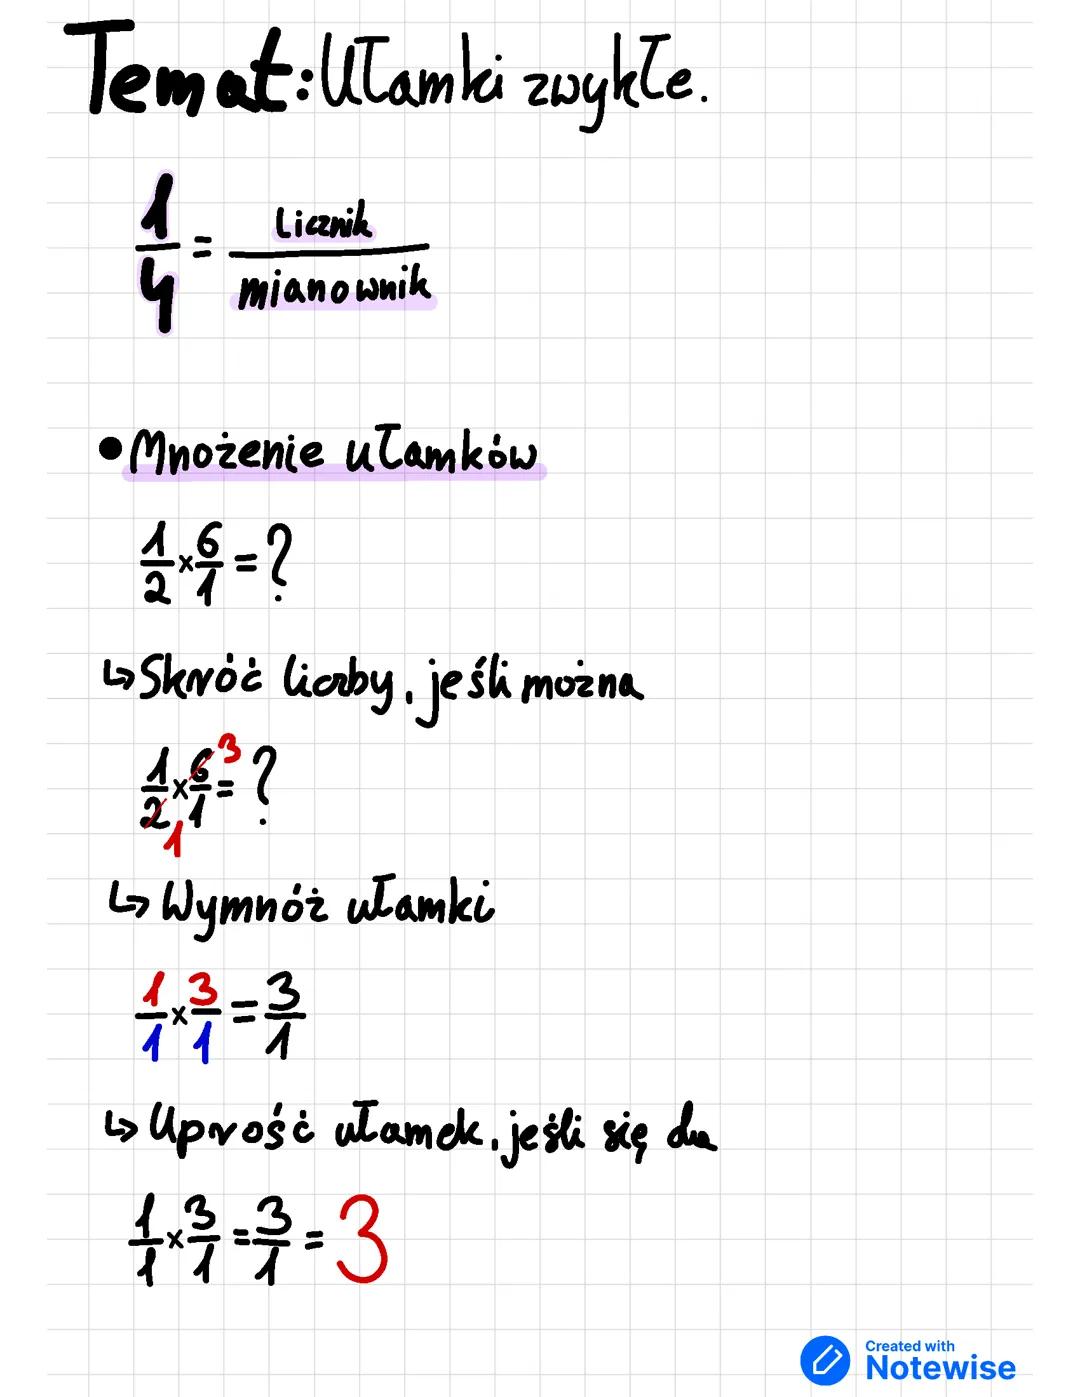 Temat: Ułamki zwykłe.
1/4 = Licznik/mianownik
• Mnożenie ułamków
1/2 × 6/1 = ?
↳ Skróć liczby, jeśli można
1/2 × 6/1 = ?
3
1
↳ Wymnóż ułamki
1/1 × 3/1 = 3/1
↳ Uprość ułamek, jeśli się da
1/1 × 3/1 = 3/1 = 3
Created with
Notewise